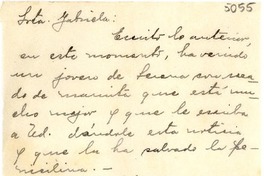 5055
Srta. Gabriela:
Escrito lo anterior,
en este momento, ha venido
un joven de Serena con recado
de mamita que está mucho
mejor y que le escriba
a Ud. dándole esta noticia
y que la ha salvado la pe-
nicilina. -